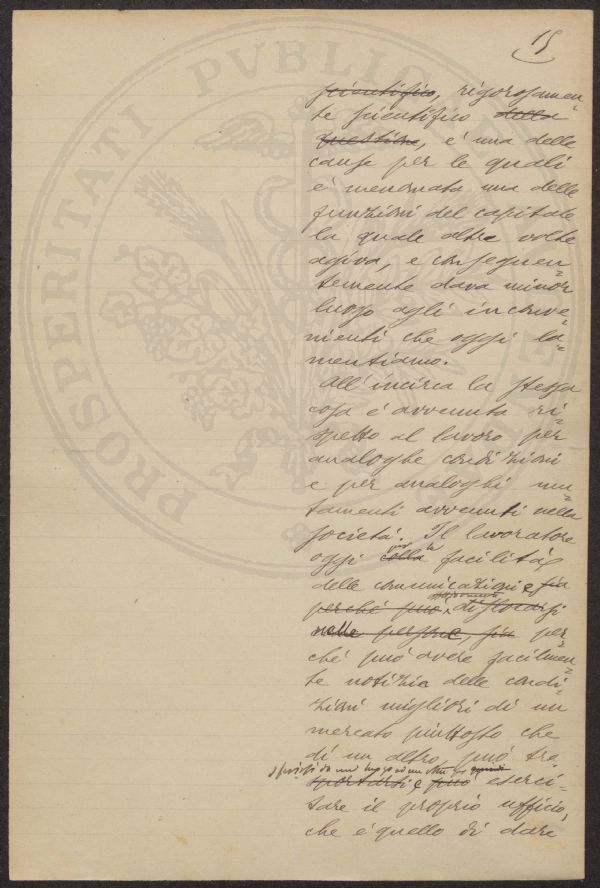 15
PROSPERITATI PVBLICAE
scientifico, rigorosamen=
te scientifico della
questione, é una delle
cause per le quali
é menomata una delle
funzioni del capitale
la quale altre volte
agiva, e conseguen=
temente dava minor
luogo agli inconve=
nienti che oggi la=
mentiamo.
All'incirca la stessa
cosa é avvenuta ri=
spetto al lavoro per
analoghe condizioni
e per analoghi mu=
tamenti avvenuti nella
società. Il lavoratore
oggi colla facilità
delle comunicazioni e sia
perché può dislocarsi
nelle persone, sia per=
ché può avere facilmen=
te notizia delle condi=
zioni migliori di un
mercato piuttosto che
di un altro, può tra
sportarsi e può eserci=
tare il proprio ufficio,
che é quello di dare